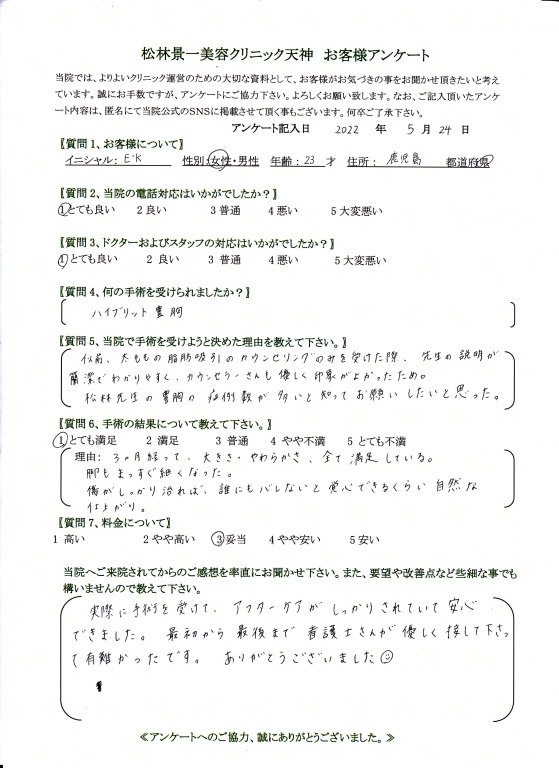 松林景一美容クリニック天神 お客様アンケート
当院では、よりよいクリニック運営のための大切な資料として、お客様がお気づきの事をお聞かせ頂きたいと考え
ています。誠にお手数ですが、アンケートにご協力下さい。よろしくお願い致します。なお、ご記入頂いたアンケ
ート内容は、匿名にて当院公式のSNSに掲載させて頂く事もございます。何卒ご了承下さい。
アンケート記入日 2022 年 5 月 24 日
〖質問1、お客様について〗
イニシャル: E・K 性別:女性・男性 年齢: 23 才 住所: 鹿児島 都道府県
〖質問2、当院の電話対応はいかがでしたか?〗
1とても良い 2 良い 3 普通 4 悪い 5 大変悪い
〖質問3、ドクターおよびスタッフの対応はいかがでしたか?〗
1とても良い 2 良い 3 普通 4 悪い 5 大変悪い
〖質問4、何の手術を受けられましたか?〗
ハイブリット豊胸
〖質問5、当院で手術を受けようと決めた理由を教えて下さい。〗
以前、太ももの脂肪吸引のカウンセリングのみを受けた際、先生の説明が
簡潔でわかりやすく、カウンセラーさんも優しく印象がよかったため。
松林先生の豊胸の症例数が多いと知ってお願いしたいと思った。
〖質問6、手術の結果について教えて下さい。〗
1とても満足 2 満足 3 普通 4 やや不満 5 とても不満
理由: 3ヶ月経って、大きさ・やわらかさ、全て満足している。
脚もまっすぐ細くなった。
傷がしっかり治れば、誰にもバレないと安心できるくらい自然な
仕上がり。
〖質問7、料金について〗
1 高い 2 やや高い 3妥当 4 やや安い 5 安い
当院へご来院されてからのご感想を率直にお聞かせ下さい。また、要望や改善点など些細な事でも
構いませんので教えて下さい。
実際に手術を受けて、アフターケアがしっかりされていて安心
できました。最初から最後まで看護士さんが優しく接して下さっ
て有難かったです。ありがとうございました☺
≪アンケートへのご協力、誠にありがとうございました。≫